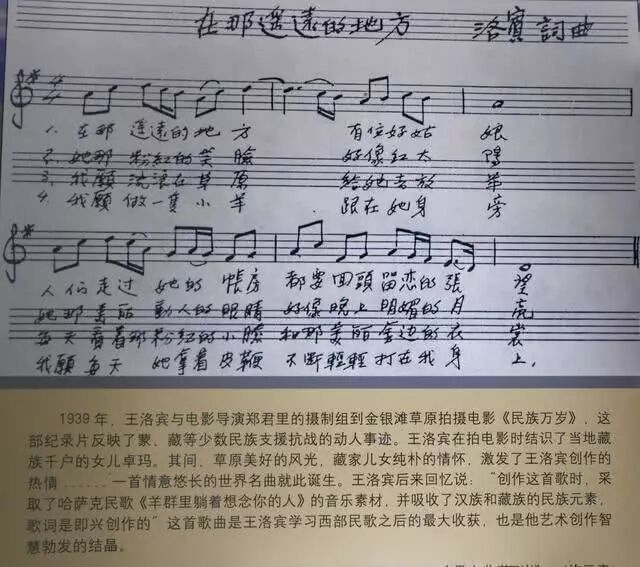 在那遥遠的地方 洛賓詞曲
1. 在那遥遠的地方 有位好姑娘
2. 她那粉紅的笑臉 好像紅太陽
3. 我願流浪在草原 給她去放羊
4. 我願做一隻小羊 跟在她身旁
人们走过她的帳房 都要回頭留恋的張望
她那美丽動人的眼睛 好像晚上明媚的月亮
每天看着那粉紅的小臉 和那美丽金边的衣裳
我願每天她拿着皮鞭 不断輕輕打在我身上,
1939年，王洛宾与电影导演郑君里的摄制组到金银滩草原拍摄电影《民族万岁》，这
部纪录片反映了蒙、藏等少数民族支援抗战的动人事迹。王洛宾在拍电影时结识了当地藏
族千户的女儿卓玛。其间，草原美好的风光，藏家儿女纯朴的情怀，激发了王洛宾创作的
热情 …… 一首情意悠长的世界名曲就此诞生。王洛宾后来回忆说：“创作这首歌时，采
取了哈萨克民歌《羊群里躺着想念你的人》的音乐素材，并吸收了汉族和藏族的民族元素，
歌词是即兴创作的”这首歌曲是王洛宾学习西部民歌之后的最大收获，也是他艺术创作智
慧勃发的结晶。